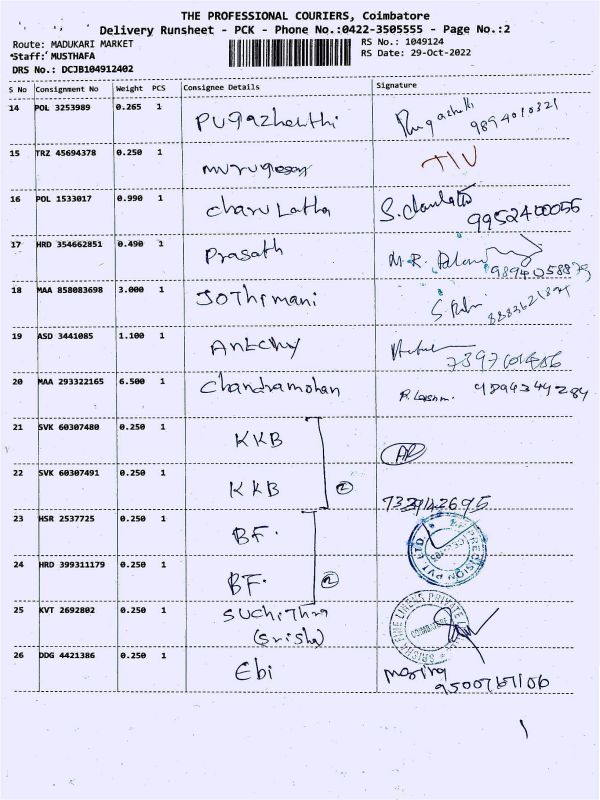 THE PROFESSIONAL COURIERS, Coimbatore
Delivery Runsheet - PCK - Phone No.:0422-3505555 - Page No.:2
Route: MADUKARI MARKET RS No.: 1049124
Staff: MUSTHAFA RS Date: 29-Oct-2022
DRS No.: DCJB104912402
S No Consignment No Weight PCS Consignee Details Signature
14 POL 3253989 0.265 1 Pugazhenthi Pugazhethi 9894010321
15 TRZ 45694378 0.250 1 murugesan
16 POL 1533017 0.990 1 charulatha S. 9952400056
17 HRD 354662851 0.490 1 Prasath M.R.
18 MAA 858083698 3.000 1 Jothimani S.
19 ASD 3441085 1.100 1 Antony
20 MAA 293322165 6.500 1 Chandramohan R. 9894344284
21 SVK 60307480 0.250 1 KKB
22 SVK 60307491 0.250 1 KKB 2
23 HSR 2537725 0.250 1 BF.
24 HRD 399311179 0.250 1 BF. 2 PRECISION PVT LTD
25 KVT 2692802 0.250 1 Suchithra
(Srisha) COIMBATORE
26 DDG 4421386 0.250 1 Ebi